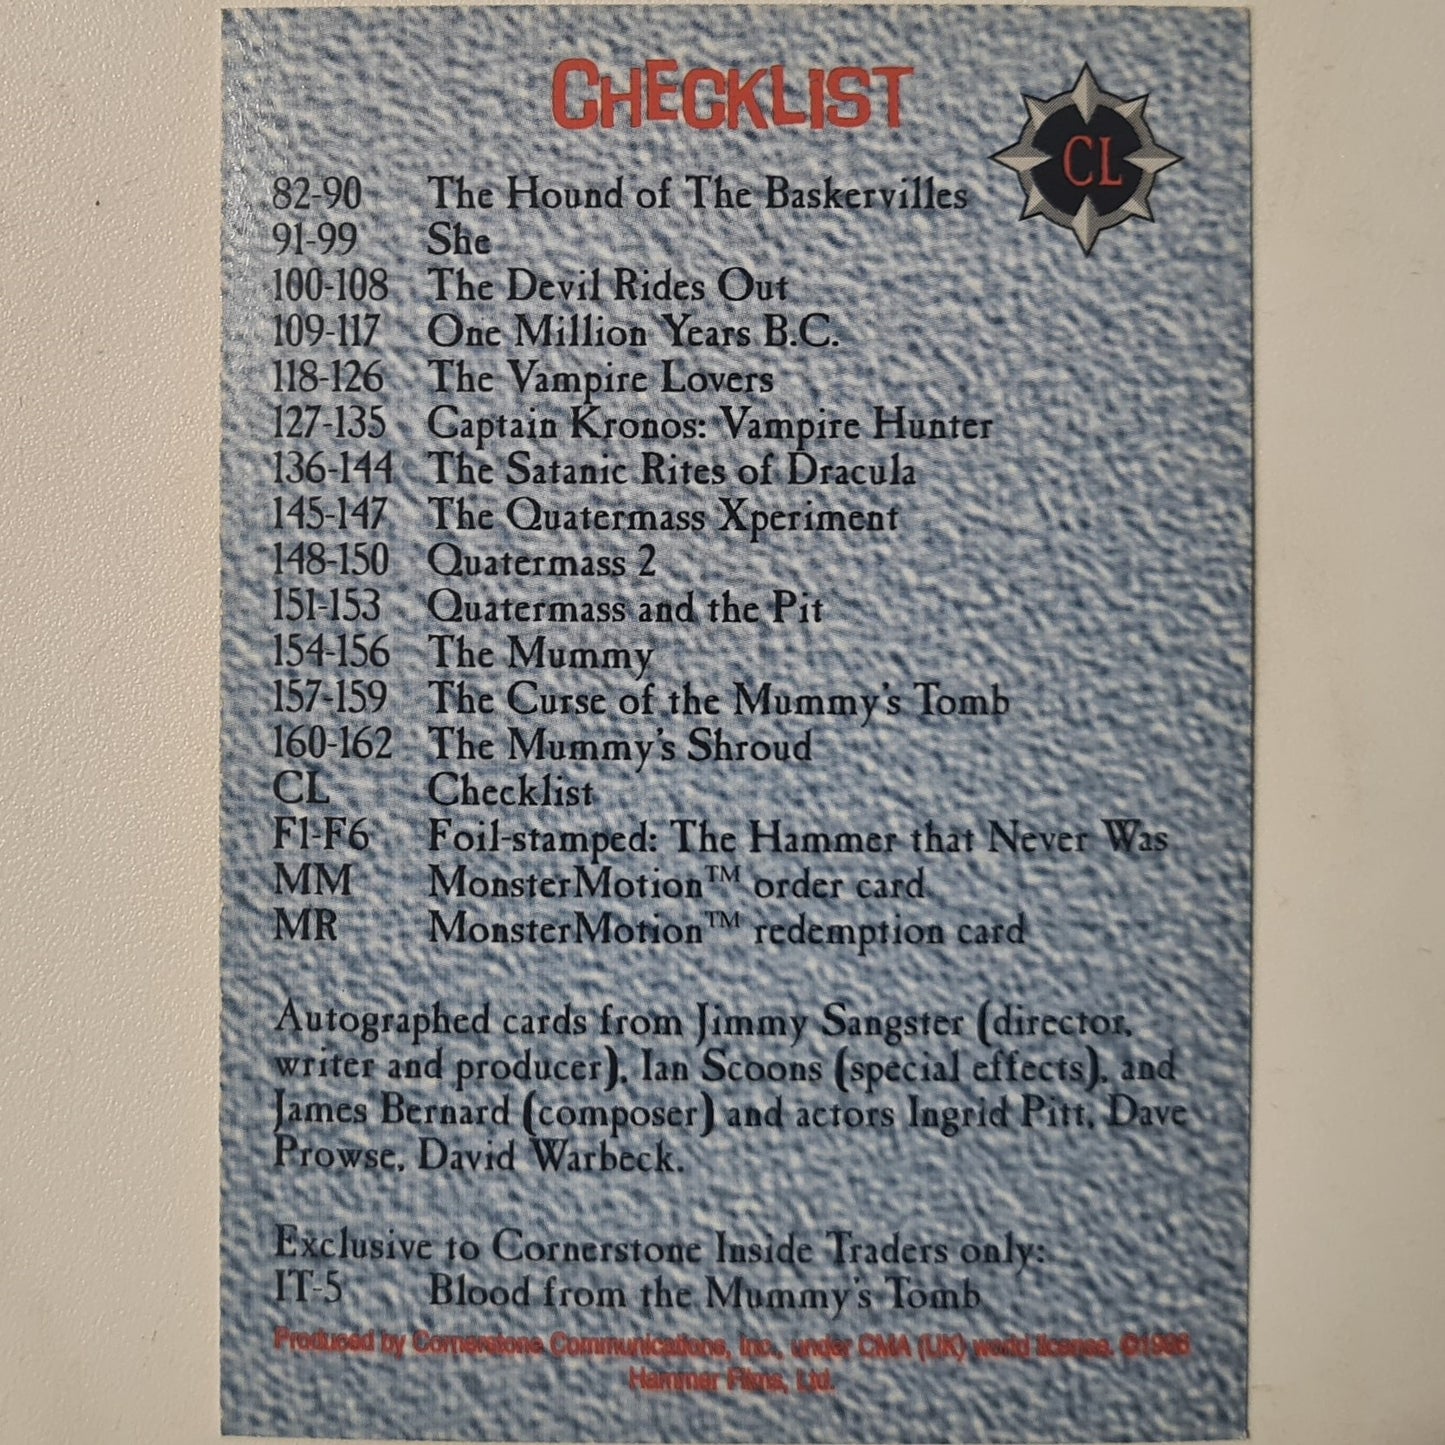 CHECKLIST
CL
82-90 The Hound of The Baskervilles
91-99 She
100-108 The Devil Rides Out
109-117 One Million Years B.C.
118-126 The Vampire Lovers
127-135 Captain Kronos: Vampire Hunter
136-144 The Satanic Rites of Dracula
145-147 The Quatermass Xperiment
148-150 Quatermass 2
151-153 Quatermass and the Pit
154-156 The Mummy
157-159 The Curse of the Mummy's Tomb
160-162 The Mummy's Shroud
CL Checklist
F1-F6 Foil-stamped: The Hammer that Never Was
MM MonsterMotion™ order card
MR MonsterMotion™ redemption card
Autographed cards from Jimmy Sangster (director,
writer and producer), Ian Scoons (special effects), and
James Bernard (composer) and actors Ingrid Pitt, Dave
Prowse, David Warbeck.
Exclusive to Cornerstone Inside Traders only:
IT-5 Blood from the Mummy's Tomb
Produced by Cornerstone Communications, Inc., under CMA (UK) world license. ©1996
Hammer Films, Ltd.